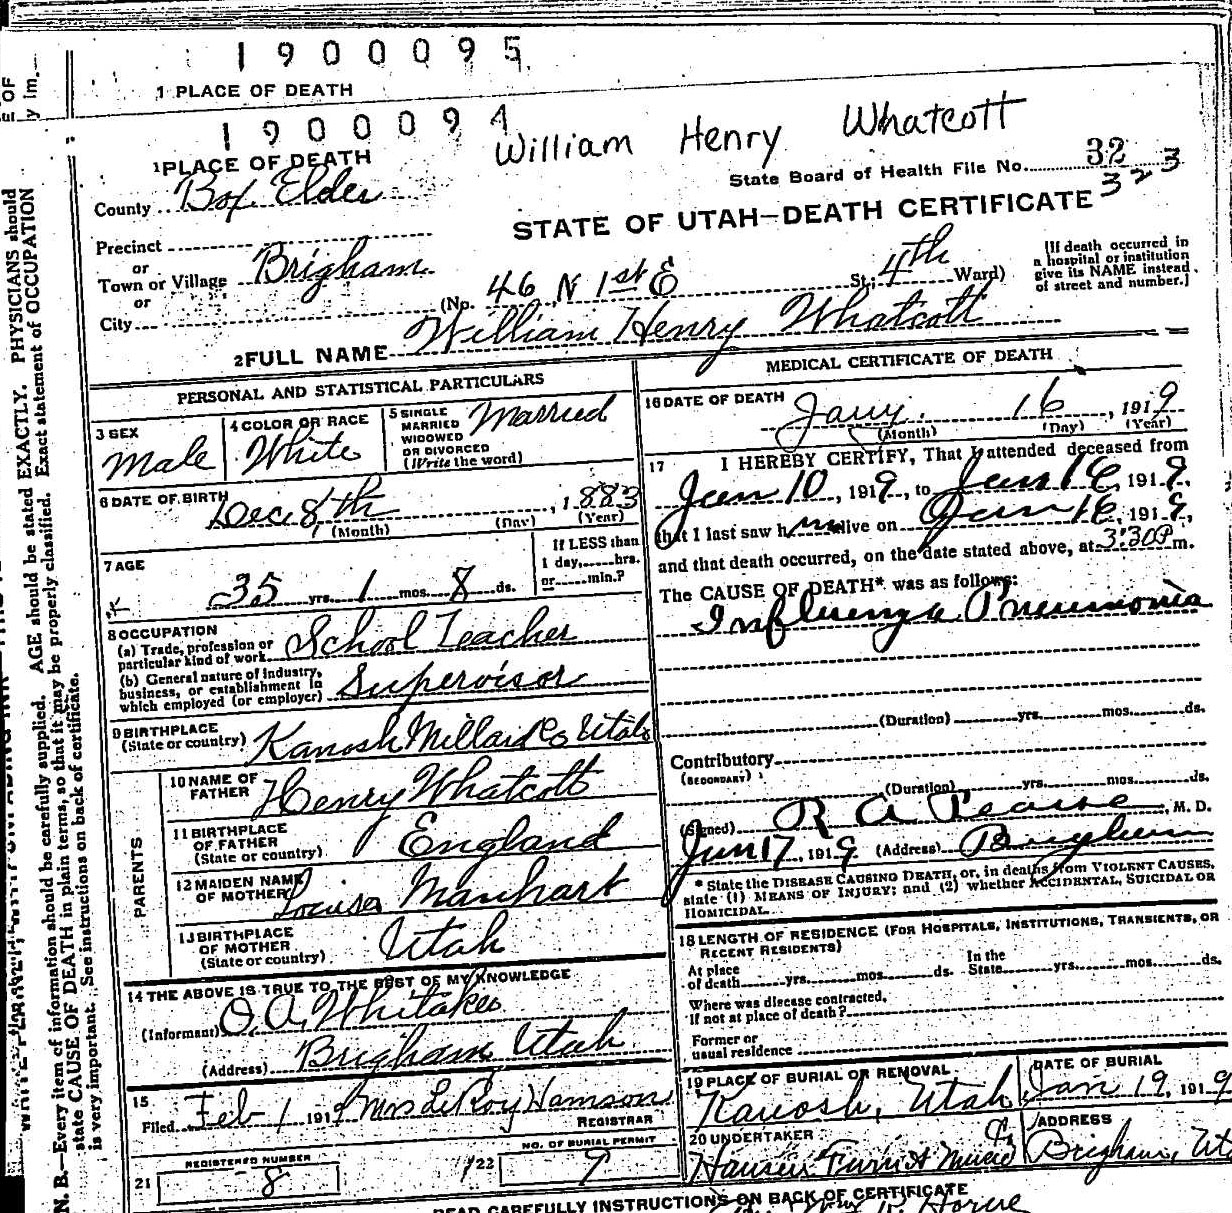 1900095
1 PLACE OF DEATH
1900094
William Henry Whatcott
1 PLACE OF DEATH
State Board of Health File No. 32
323
County Box Elder
STATE OF UTAH—DEATH CERTIFICATE
Precinct
or
Town or Village Brigham
or
City
(No. 46 N 1st E St; 4th Ward)
[If death occurred in
a hospital or institution
give its NAME instead
of street and number.]
2 FULL NAME William Henry Whatcott
PERSONAL AND STATISTICAL PARTICULARS
3 SEX
Male
4 COLOR OR RACE
White
5 SINGLE
MARRIED
WIDOWED
OR DIVORCED
(Write the word)
Married
6 DATE OF BIRTH
Dec 8th, 1883
(Month) (Day) (Year)
7 AGE
35 yrs. 1 mos. 8 ds.
If LESS than
1 day, hrs.
or min.?
8 OCCUPATION
(a) Trade, profession or
particular kind of work School Teacher
(b) General nature of industry,
business, or establishment in
which employed (or employer) Supervisor
9 BIRTHPLACE
(State or country) Kanosh Millard Co Utah
PARENTS
10 NAME OF
FATHER Henry Whatcott
11 BIRTHPLACE
OF FATHER
(State or country) England
12 MAIDEN NAME
OF MOTHER Louisa Manhart
13 BIRTHPLACE
OF MOTHER
(State or country) Utah
14 THE ABOVE IS TRUE TO THE BEST OF MY KNOWLEDGE
(Informant) O. A. Whitaker
(Address) Brigham Utah
15
Filed Feb 1 1919 Mrs LeRoy Hamson
REGISTRAR
REGISTERED NUMBER
21 8
NO. OF BURIAL PERMIT
22 9
MEDICAL CERTIFICATE OF DEATH
16 DATE OF DEATH
Jany. 16, 1919
(Month) (Day) (Year)
17 I HEREBY CERTIFY, That I attended deceased from
Jan 10, 1919, to Jan 16, 1919,
that I last saw him alive on Jan 16, 1919,
and that death occurred, on the date stated above, at 3:30 P m.
The CAUSE OF DEATH* was as follows:
Influenza Pneumonia
(Duration) yrs. mos. ds.
Contributory
(SECONDARY)
(Duration) yrs. mos. ds.
(Signed) R A Pearse, M. D.
Jan 17, 1919 (Address) Brigham
* State the DISEASE CAUSING DEATH, or, in deaths from VIOLENT CAUSES,
state (1) MEANS OF INJURY; and (2) whether ACCIDENTAL, SUICIDAL OR
HOMICIDAL.
18 LENGTH OF RESIDENCE (FOR HOSPITALS, INSTITUTIONS, TRANSIENTS, OR
RECENT RESIDENTS)
At place
of death yrs. mos. ds.
In the
State yrs. mos. ds.
Where was disease contracted,
if not at place of death?
Former or
usual residence
19 PLACE OF BURIAL OR REMOVAL
Kanosh, Utah
DATE OF BURIAL
Jan 19, 1919
20 UNDERTAKER
Hansen Furn & Music Co
ADDRESS
Brigham, Uta
READ CAREFULLY INSTRUCTIONS ON BACK OF CERTIFICATE
N. B.—Every item of information should be carefully supplied. AGE should be stated EXACTLY. PHYSICIANS should
state CAUSE OF DEATH in plain terms, so that it may be properly classified. Exact statement of OCCUPATION
is very important. See instructions on back of certificate.